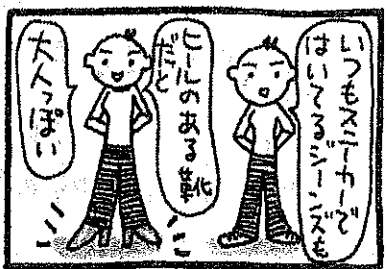 いつもスニーカーで
はいてるジーンズも
ヒールのある靴
だと
大人っぽい